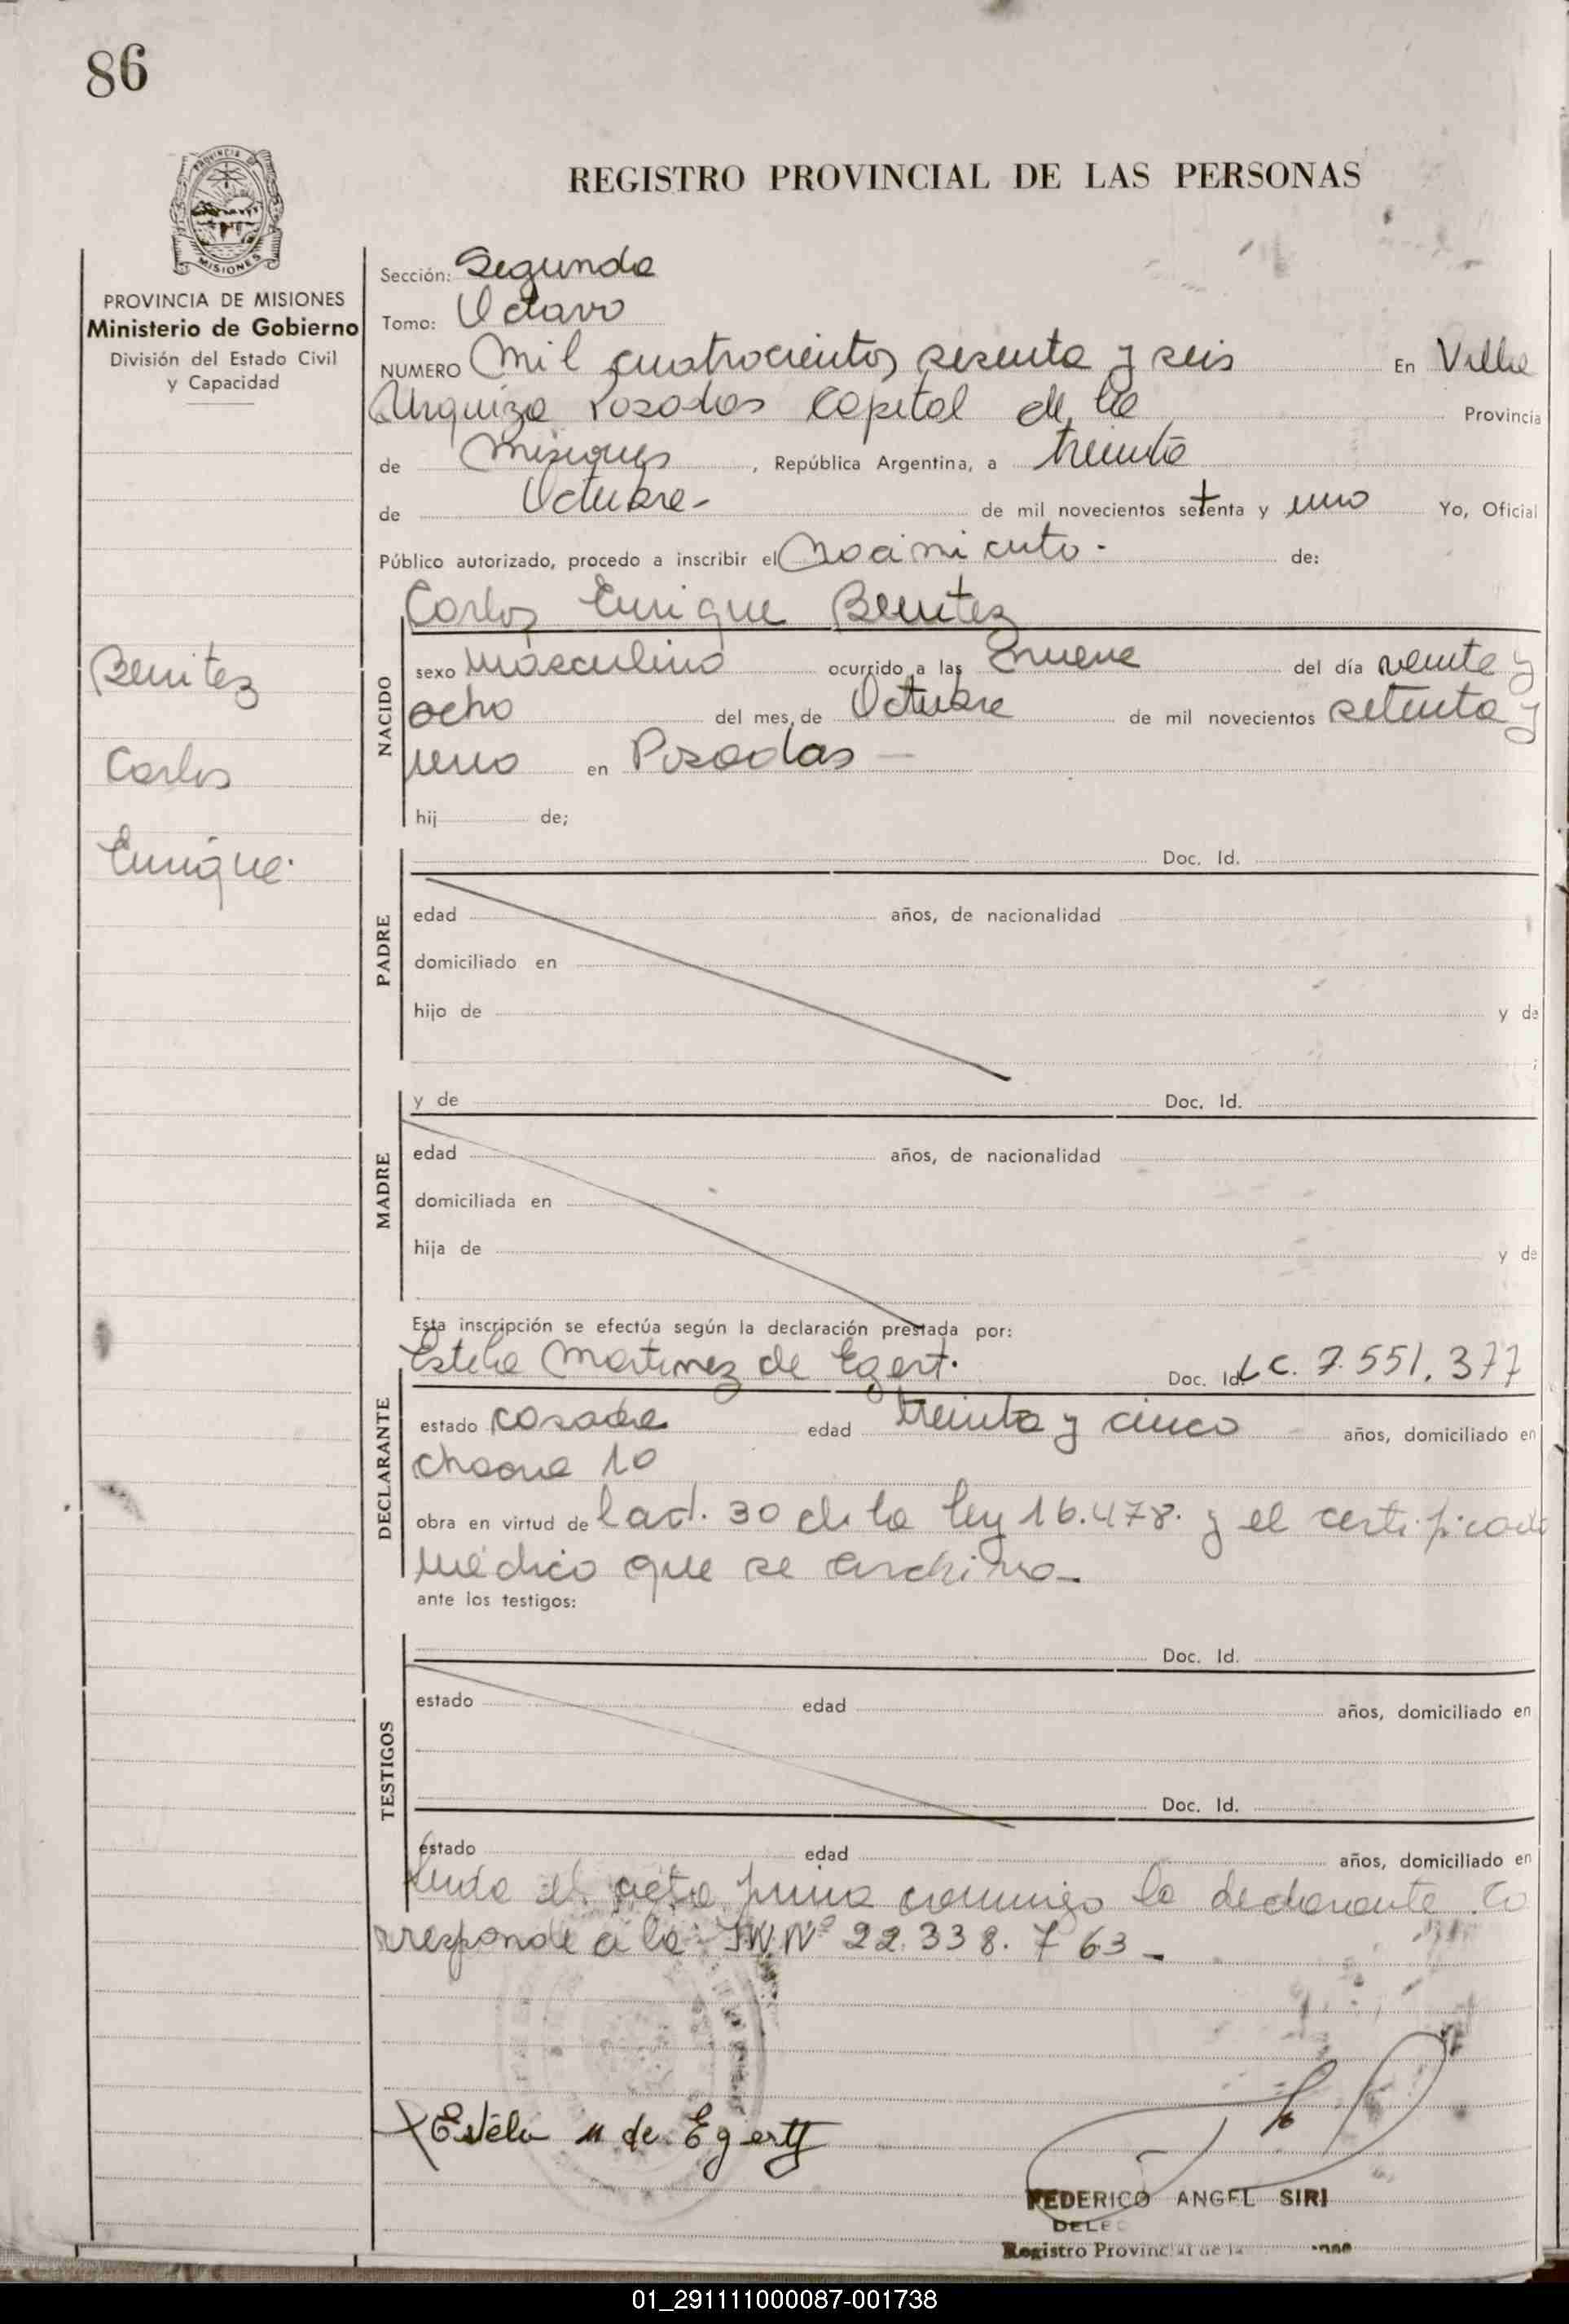 86
PROVINCIA DE
MISIONES
REGISTRO PROVINCIAL DE LAS PERSONAS
PROVINCIA DE MISIONES
Ministerio de Gobierno
División del Estado Civil
y Capacidad
Sección: Segunda
Tomo: Octavo
NUMERO Mil cuatrocientos sesenta y seis En Villa
Urquiza Posadas Capital de la Provincia
de Misiones, República Argentina, a treinta
de Octubre - de mil novecientos setenta y uno Yo, Oficial
Público autorizado, procedo a inscribir el nacimiento - de:
Carlos Enrique Benitez
Benitez
Carlos
Enrique.
NACIDO
sexo masculino ocurrido a las nueve del día veinte y
ocho del mes de Octubre de mil novecientos setenta y
uno en Posadas —
hij de;
PADRE
Doc. Id.
edad años, de nacionalidad
domiciliado en
hijo de y de
;
MADRE
y de Doc. Id.
edad años, de nacionalidad
domiciliada en
hija de y de
Esta inscripción se efectúa según la declaración prestada por:
DECLARANTE
Estela Martinez de Egert. Doc. Id. LC. 7.551.377
estado casada edad treinta y cinco años, domiciliado en
chacra 10
obra en virtud de l art. 30 de la ley 16.478. y el certificado
médico que se archiva -
ante los testigos:
TESTIGOS
Doc. Id.
estado edad años, domiciliado en
Doc. Id.
estado edad años, domiciliado en
Leida el acta firma conmigo la declarante. Co
rresponde a la Nº 22.338.763 -
Estela M de Egert
FEDERICO ANGEL SIRI
DELEG
Registro Provincial de la
01_291111000087-001738